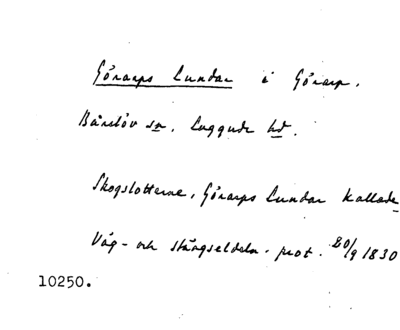 Görarps Lundar i Görarp.
Bårslöv sn. Luggude hd.
Skogslotterne, Görarps Lundar kallade
Väg- och stängseldeln. prot. 20/9 1830
10250.